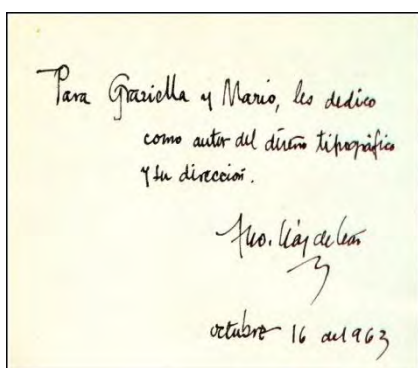 Para Graziella y Mario, les dedico
como autor del diseño tipográfico
y su dirección.
Fco. Díaz de León
octubre 16 del 1963